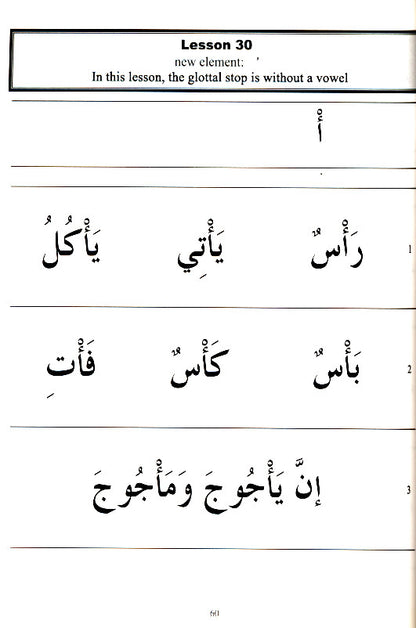 Lesson 30
new element: ʼ
In this lesson, the glottal stop is without a vowel
أْ
رَأْسٌ يَأْتِي يَأْكُلُ 1
بَأْسٌ كَأْسٌ فَأْتِ 2
إنَّ يَأْجُوجَ وَمَأْجُوجَ 3
60